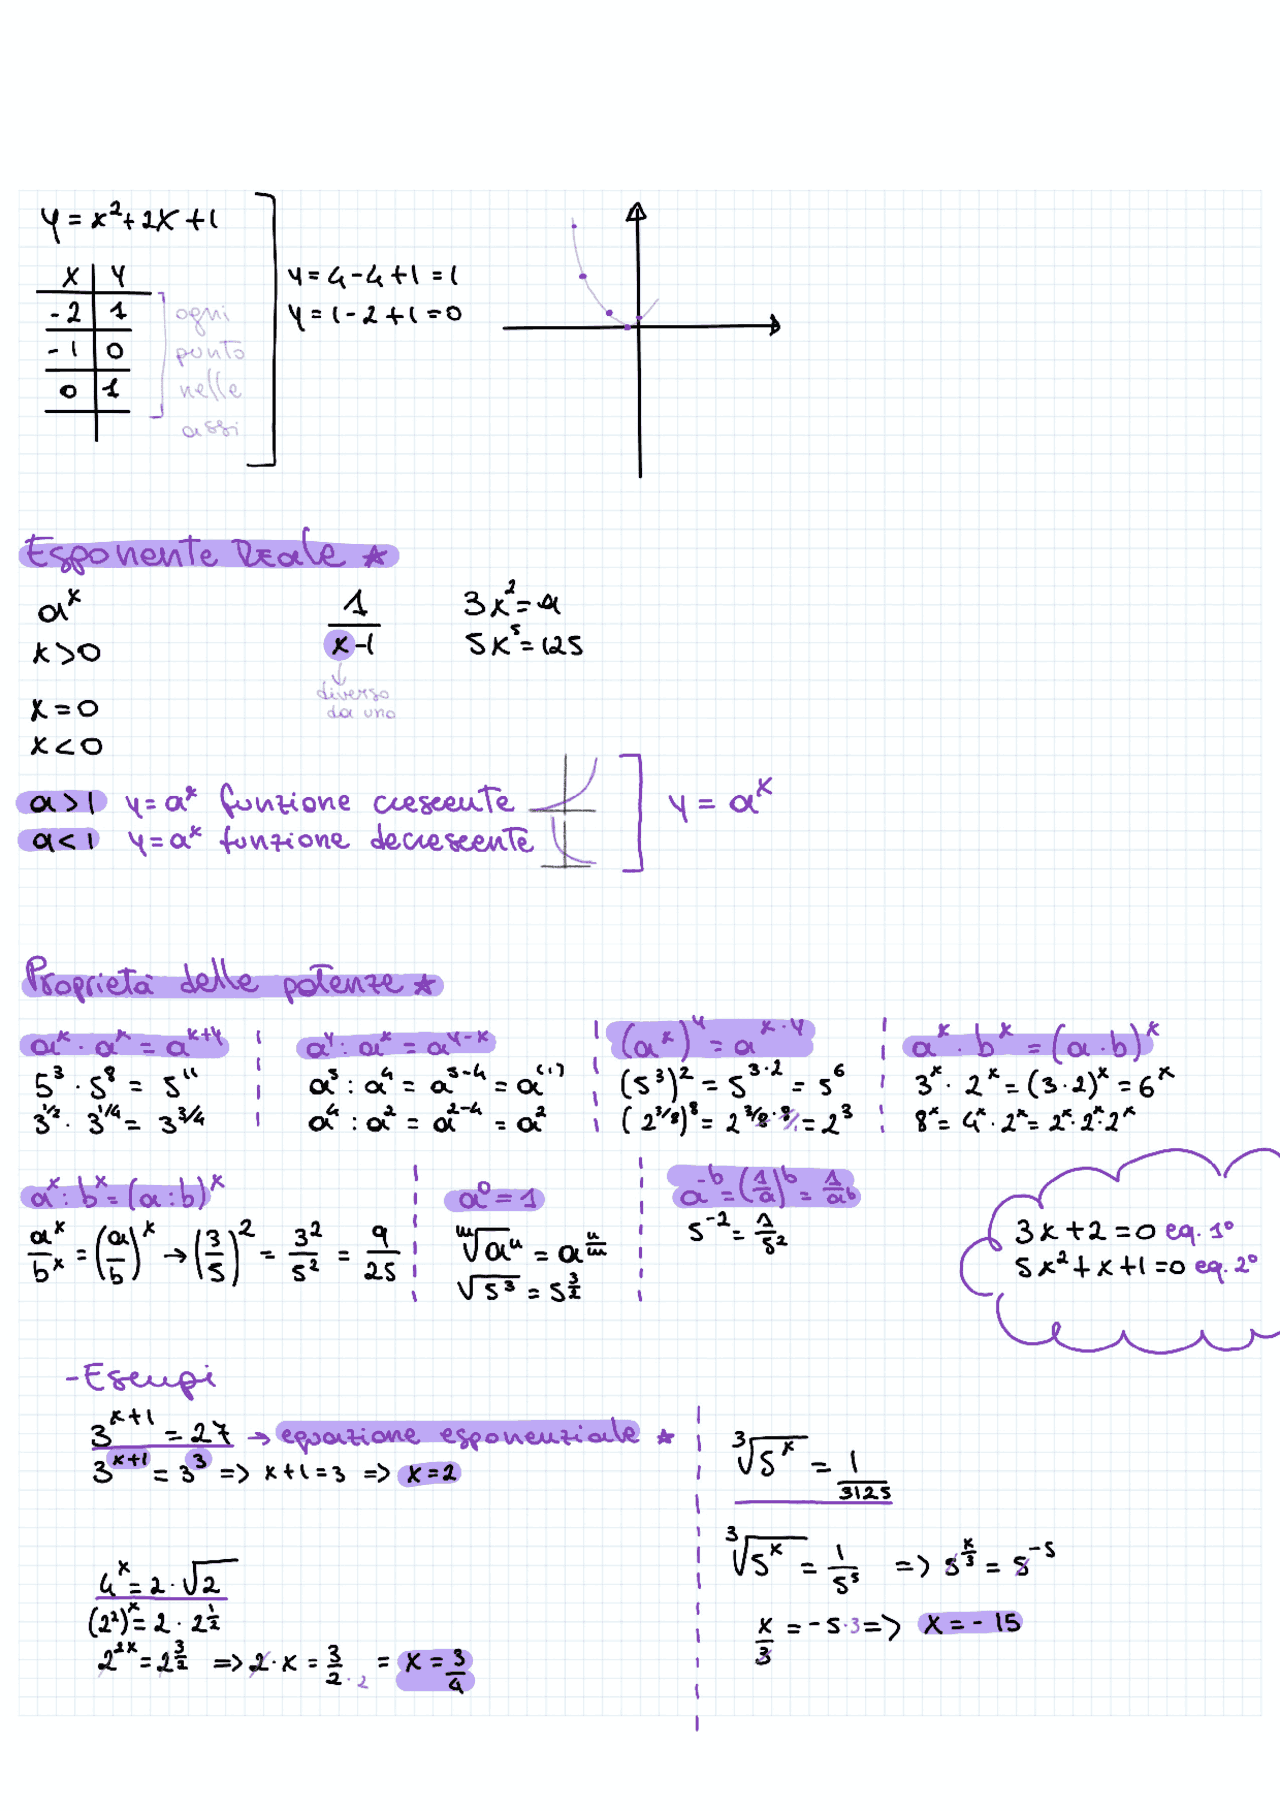 y = x²+2x+1
x | y
-2 | 1
-1 | 0
0 | 1
ogni
punto
nelle
assi
y = 4-4+1 = 1
y = 1-2+1 = 0
Esponente Reale ★
aˣ
x>0
x=0
x<0
1/(x-1)
↓
diverso
da uno
3x² = 9
5x⁵ = 125
a>1 y=aˣ funzione crescente
a<1 y=aˣ funzione decrescente
y = aˣ
Proprietà delle potenze ★
aˣ · aˣ = aˣ⁺ʸ
5³ · 5⁸ = 5¹¹
3^1/2 · 3^1/4 = 3^3/4
aʸ : aˣ = aʸ⁻ˣ
a³ : a⁴ = a³⁻⁴ = a⁽⁻¹⁾
a⁴ : a² = a²⁻⁴ = a²
(aˣ)ʸ = a^x·y
(5³)² = 5^3·2 = 5⁶
(2^3/8)⁸ = 2^3/8·8/1 = 2³
aˣ · bˣ = (a·b)ˣ
3ˣ · 2ˣ = (3·2)ˣ = 6ˣ
8ˣ = 4ˣ · 2ˣ = 2ˣ · 2ˣ · 2ˣ
aˣ : bˣ = (a:b)ˣ
aˣ/bˣ = (a/b)ˣ → (3/5)² = 3²/5² = 9/25
a⁰ = 1
ᵐ√aⁿ = a^n/m
√5³ = 5^3/2
a⁻ᵇ = (1/a)ᵇ = 1/aᵇ
5⁻² = 1/5²
3x+2=0 eq. 1°
5x²+x+1=0 eq. 2°
-Esempi
3ˣ⁺¹ = 27 → equazione esponenziale ★
3ˣ⁺¹ = 3³ => x+1=3 => x=2
4ˣ = 2·√2
(2²)ˣ = 2 · 2^1/2
2²ˣ = 2^3/2 => 2·x = 3/2 · 2 = x = 3/4
³√5ˣ = 1/3125
³√5ˣ = 1/5⁵ => 5^x/3 = 5⁻⁵
x/3 = -5·3 => x = -15